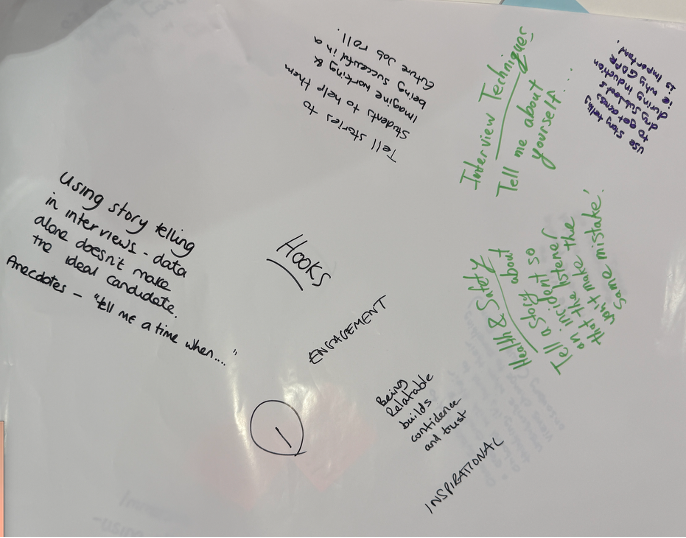 Tell stories to
Students to help them
imagine working &
being successful in a
future job roll.
Interview Techniques
Tell me about
yourself....
use story telling
to get across
dry subjects
during induction
ie why GDPR
is important.
Using story telling
in interviews - data
alone doesn't make
the ideal candidate.
Anecdotes - "tell me a time when...."
Hooks
ENGAGEMENT
Health & Safety
Tell a story about
an incident so
that the listener
don't make the
same mistake!
1
Being
Relatable
builds
confidence
and trust
INSPIRATIONAL